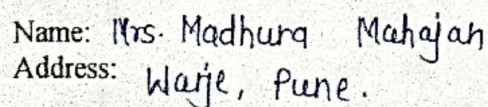 Name: Mrs. Madhura Mahajan
Address: Warje, Pune.